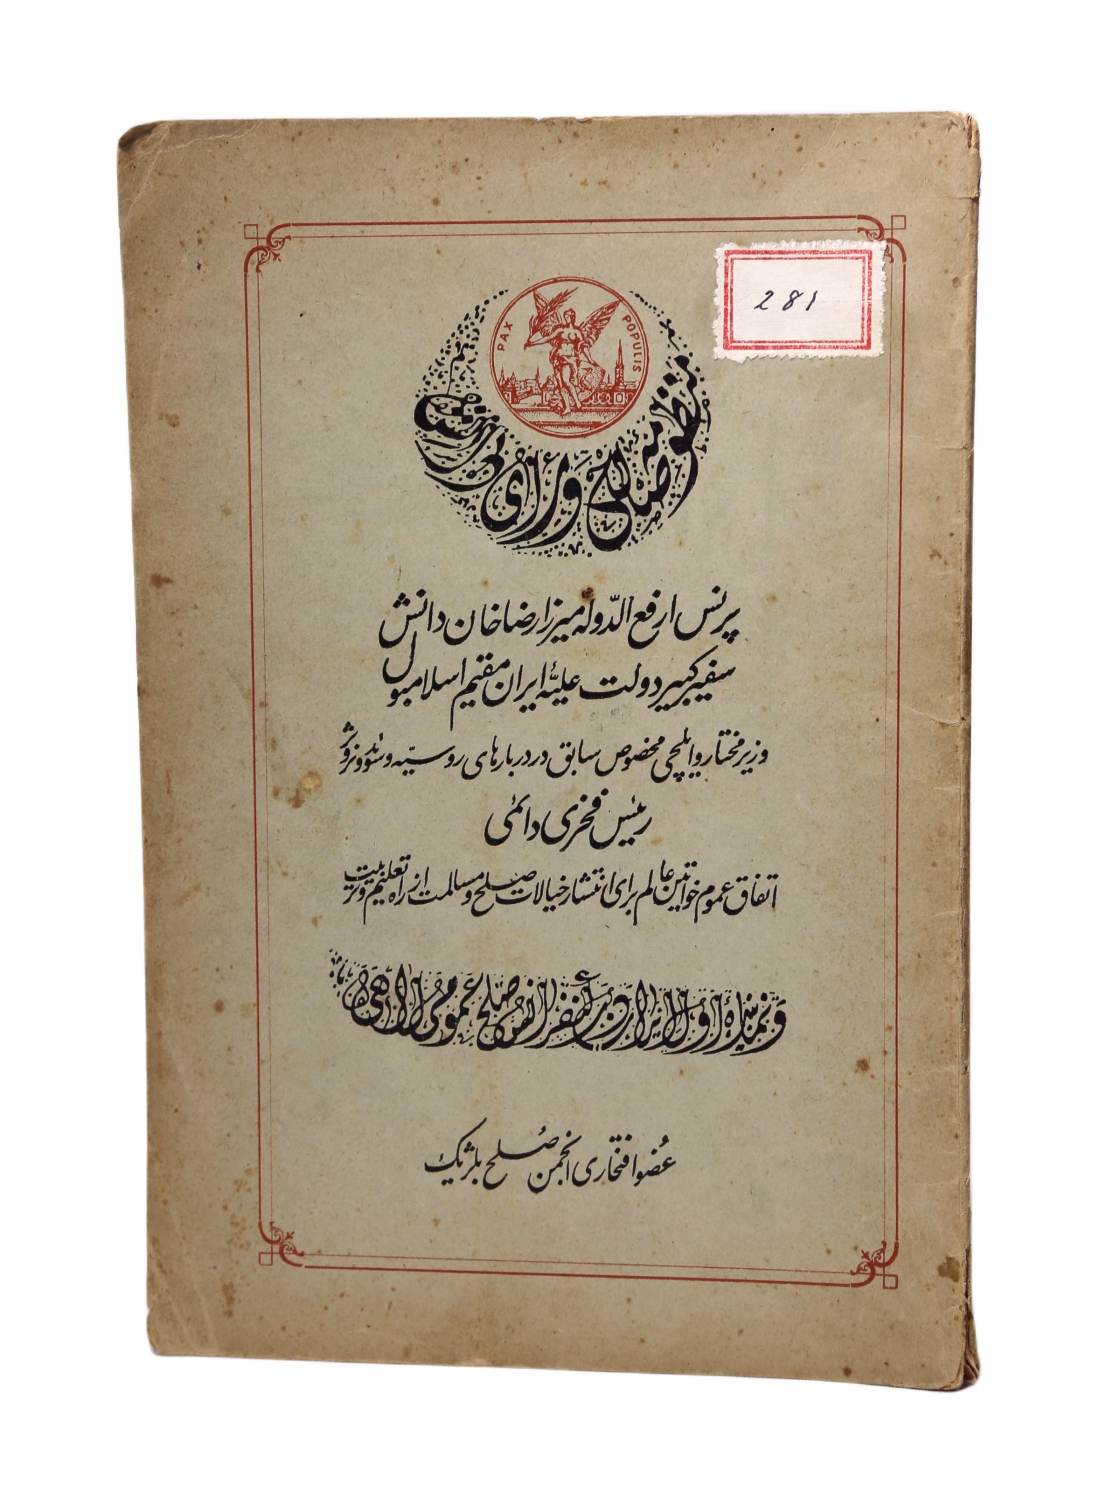 281
PAX POPULIS
منظومه صلح و رأی بی
پرنس ارفع الدّوله میرزا رضا خان دانش
سفیر کبیر دولت علیّهٔ ایران مقیم اسلامبول
وزیر مختار و ایلچی مخصوص سابق در دربارهای روسیّه و سوئد و نروژ
رئیس فخری دائمی
اتفاق عموم خواتین عالم برای انتشار خیالات صلح و مسالمت از راه تعلیم و تربیت
و نماینده اول ایران در کنفرانس صلح عمومی لاهه
عضو افتخاری انجمن صلح بلژیک